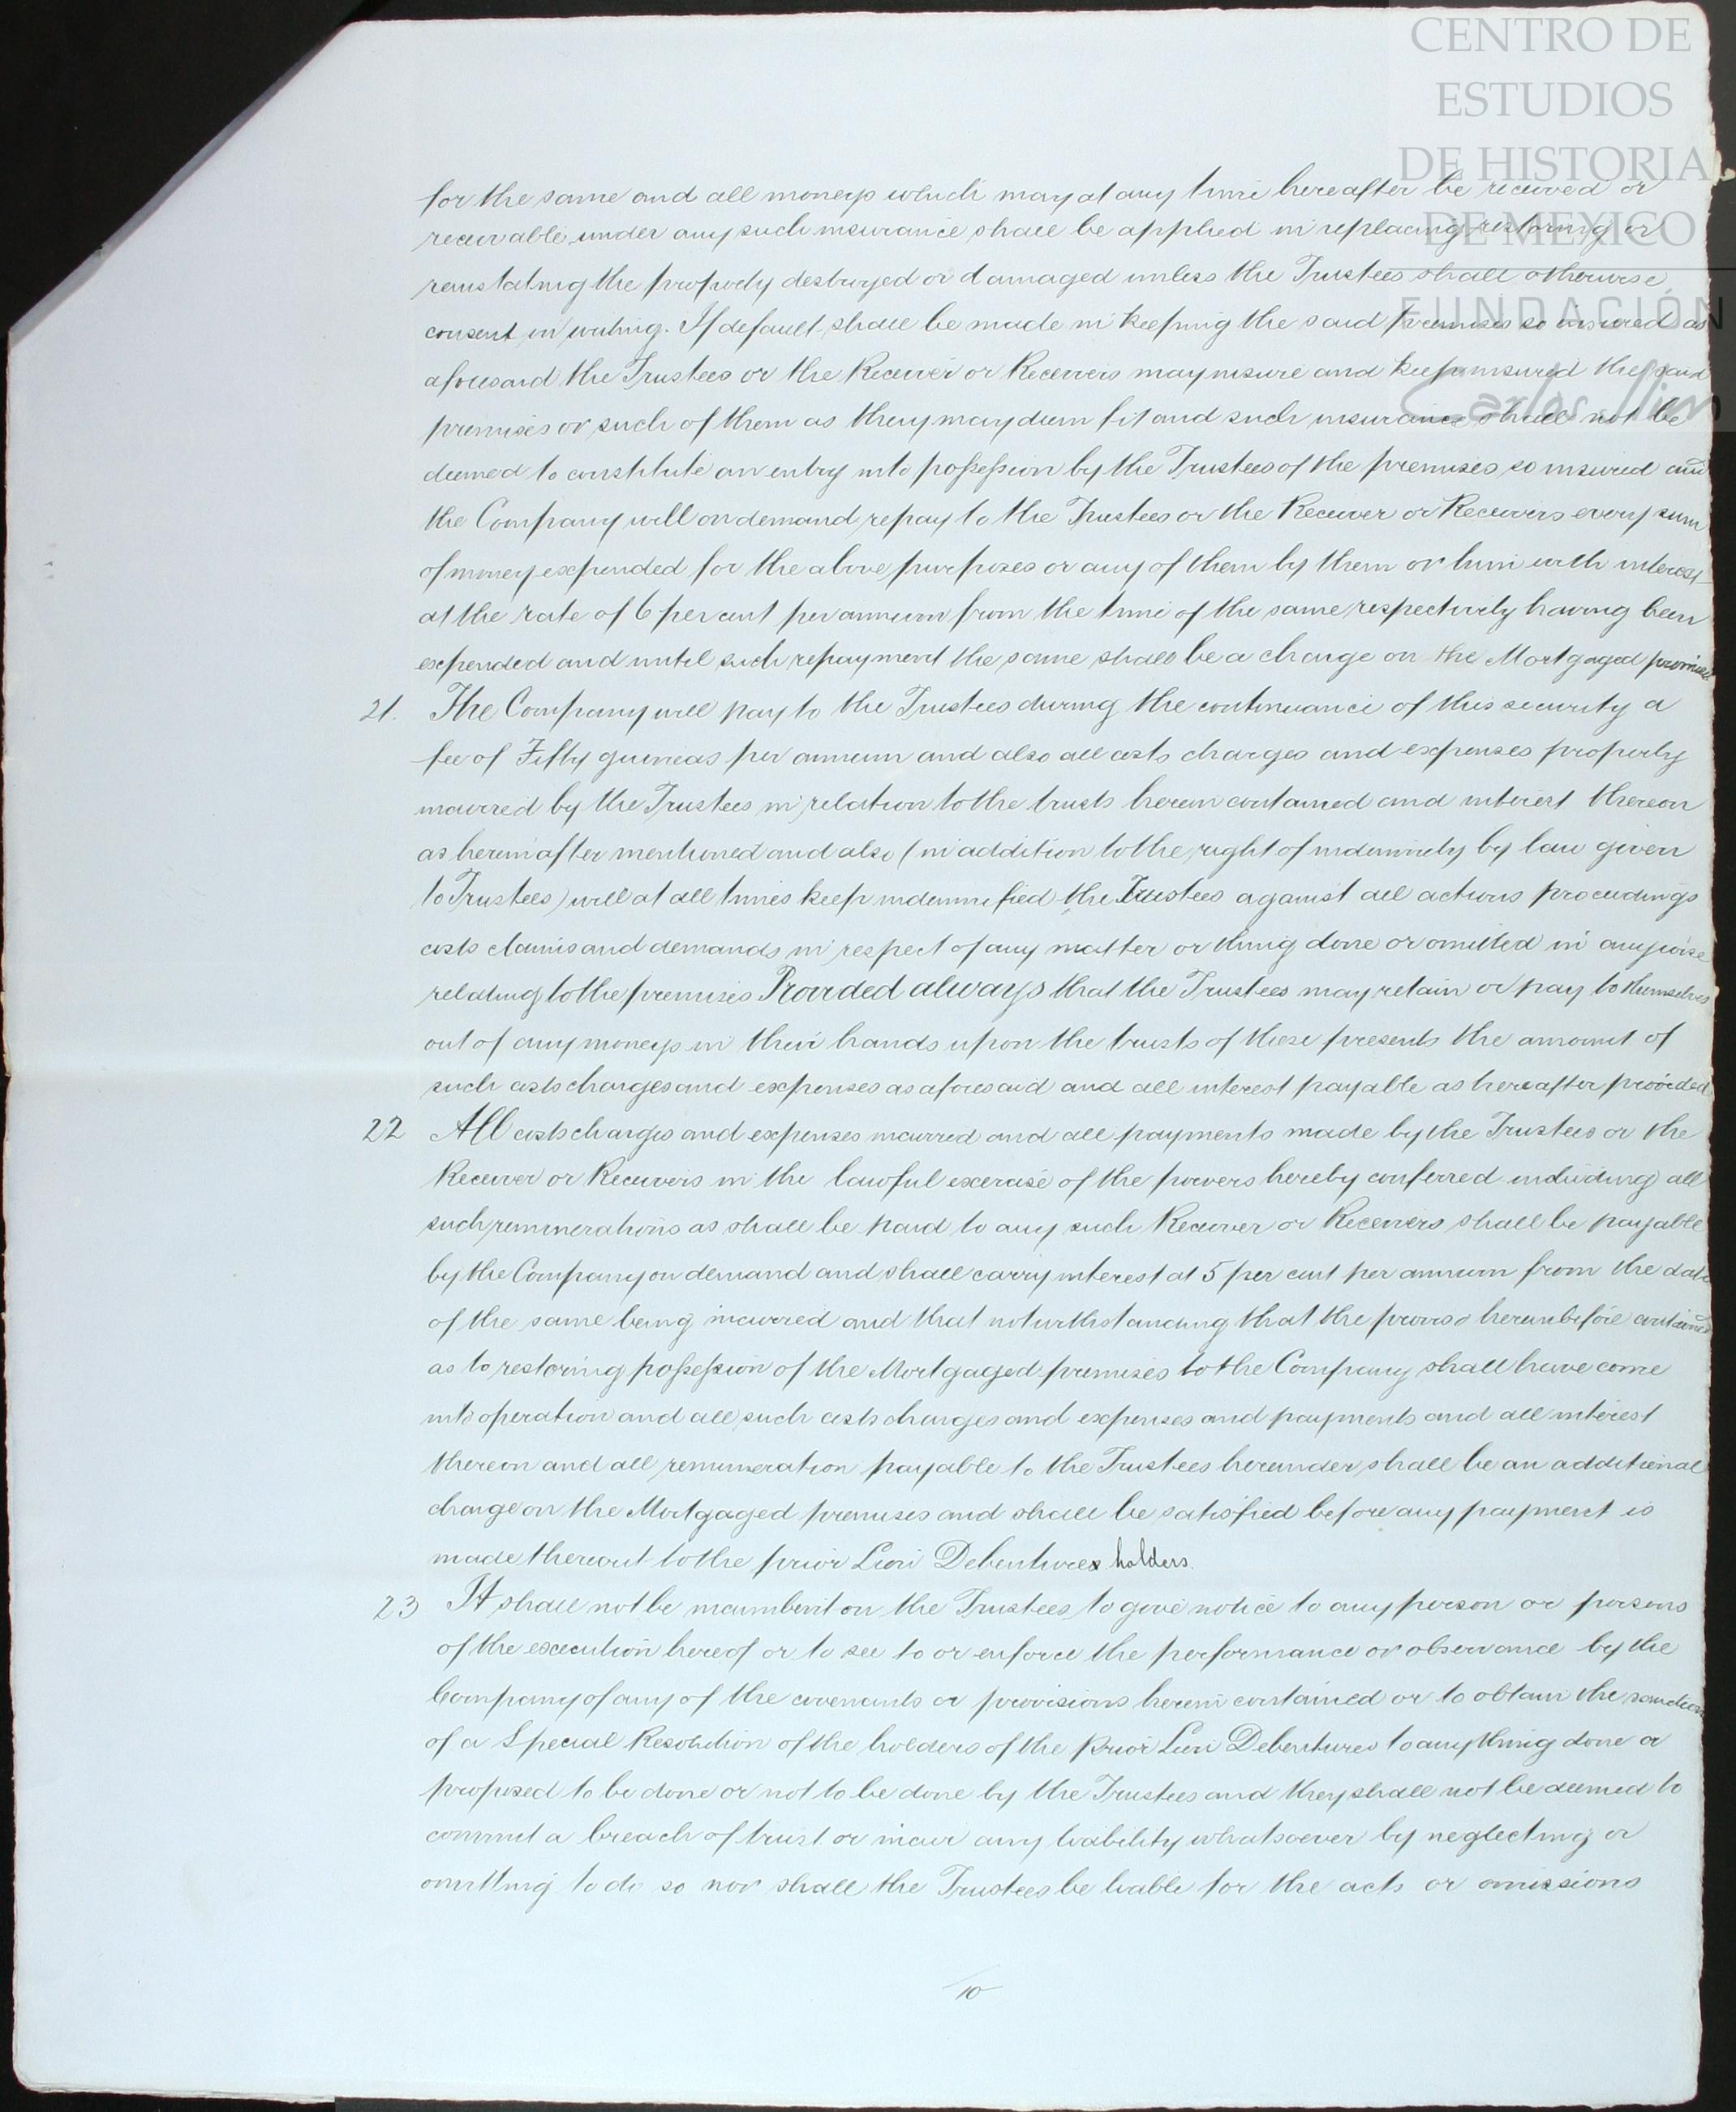 CENTRO DE
ESTUDIOS
DE HISTORIA
DE MEXICO
FUNDACIÓN
Carlos Slim
for the same and all moneys which may at any time hereafter be received or
receivable under any such insurance shall be applied in replacing restoring or
reinstating the property destroyed or damaged unless the Trustees shall otherwise
consent in writing. If default shall be made in keeping the said premises so insured as
aforesaid the Trustees or the Receiver or Receivers may insure and keep insured the said
premises or such of them as they may deem fit and such insurance shall not be
deemed to constitute an entry into possession by the Trustees of the premises so insured and
the Company will on demand repay to the Trustees or the Receiver or Receivers every sum
of money expended for the above purposes or any of them by them or him with interest
at the rate of 6 per cent per annum from the time of the same respectively having been
expended and until such repayment the same shall be a charge on the Mortgaged premises
21. The Company will pay to the Trustees during the continuance of this security a
fee of Fifty guineas per annum and also all costs charges and expenses properly
incurred by the Trustees in relation to the trusts herein contained and interest thereon
as hereinafter mentioned and also (in addition to the right of indemnity by law given
to Trustees) will at all times keep indemnified the Trustees against all actions proceedings
costs claims and demands in respect of any matter or thing done or omitted in anywise
relating to the premises Provided always that the Trustees may retain or pay to themselves
out of any moneys in their hands upon the trusts of these presents the amount of
such costs charges and expenses as aforesaid and all interest payable as hereafter provided
22 All costs charges and expenses incurred and all payments made by the Trustees or the
Receiver or Receivers in the lawful exercise of the powers hereby conferred including all
such remunerations as shall be paid to any such Receiver or Receivers shall be payable
by the Company on demand and shall carry interest at 5 per cent per annum from the date
of the same being incurred and that notwithstanding that the proviso hereinbefore contained
as to restoring possession of the Mortgaged premises to the Company shall have come
into operation and all such costs charges and expenses and payments and all interest
thereon and all remuneration payable to the Trustees hereunder shall be an additional
charge on the Mortgaged premises and shall be satisfied before any payment is
made thereout to the prior Lien Debentures holders.
23 It shall not be incumbent on the Trustees to give notice to any person or persons
of the execution hereof or to see to or enforce the performance or observance by the
Company of any of the covenants or provisions herein contained or to obtain the sanction
of a Special Resolution of the holders of the Prior Lien Debentures to anything done or
proposed to be done or not to be done by the Trustees and they shall not be deemed to
commit a breach of trust or incur any liability whatsoever by neglecting or
omitting to do so nor shall the Trustees be liable for the acts or omissions
10